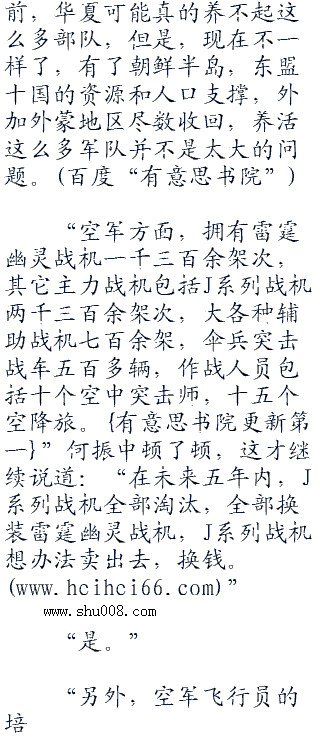 前，华夏可能真的养不起这
么多部队，但是，现在不一
样了，有了朝鲜半岛，东盟
十国的资源和人口支撑，外
加外蒙地区尽数收回，养活
这么多军队并不是太大的问
题。(百度“有意思书院”)
“空军方面，拥有雷霆
幽灵战机一千三百余架次，
其它主力战机包括J系列战机
两千三百余架次，大各种辅
助战机七百余架，伞兵突击
战车五百多辆，作战人员包
括十个空中突击师，十五个
空降旅。{有意思书院更新第
一}”何振中顿了顿，这才继
续说道：“在未来五年内，J
系列战机全部淘汰，全部换
装雷霆幽灵战机，J系列战机
想办法卖出去，换钱。
(www.hcihci66.com)”
www.shu008.com
“是。”
“另外，空军飞行员的
培